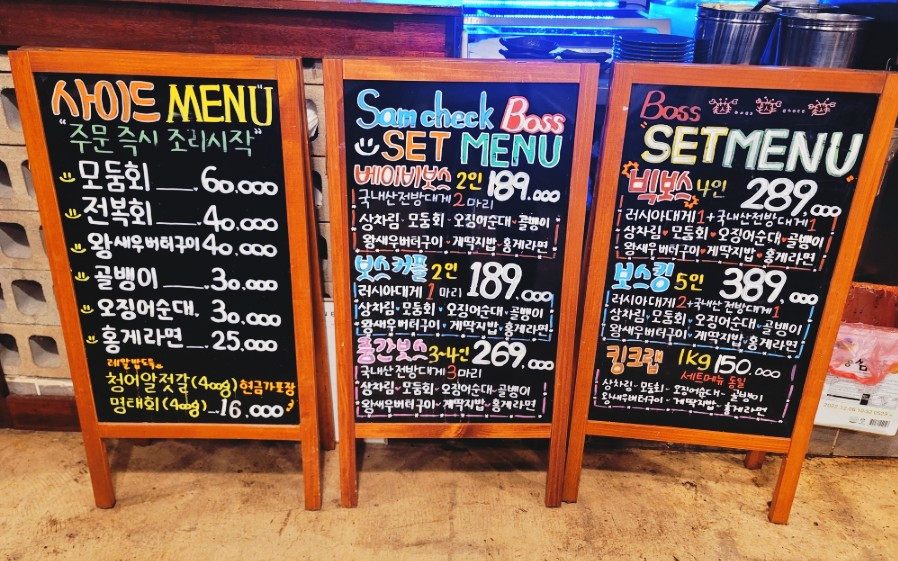 사이드 MENU
"주문 즉시 조리시작"
모둠회 60,000
전복회 40,000
왕새우버터구이 40,000
골뱅이 30,000
오징어순대 30,000
홍게라면 25,000
레알밥도둑
청어알젓갈(400g) 현금가포장
명태회(400g) 16,000
Sam check Boss
SET MENU
베이비보스 2인 189,000
국내산전방대게 2마리
상차림 모둠회 오징어순대 골뱅이
왕새우버터구이 게딱지밥 홍게라면
보스커플 2인 189,000
러시아대게 1마리
상차림 모둠회 오징어순대 골뱅이
왕새우버터구이 게딱지밥 홍게라면
중간보스 3~4인 269,000
국내산전방대게 3마리
상차림 모둠회 오징어순대 골뱅이
왕새우버터구이 게딱지밥 홍게라면
Boss
"SETMENU"
빅보스 4인 289,000
러시아대게1+국내산전방대게1
상차림 모둠회 오징어순대 골뱅이
왕새우버터구이 게딱지밥 홍게라면
보스킹 5인 389,000
러시아대게2+국내산전방대게1
상차림 모둠회 오징어순대 골뱅이
왕새우버터구이 게딱지밥 홍게라면
킹크랩 1Kg 150,000
세트메뉴 동일
상차림 모둠회 오징어순대 골뱅이
왕새우버터구이 게딱지밥 홍게라면